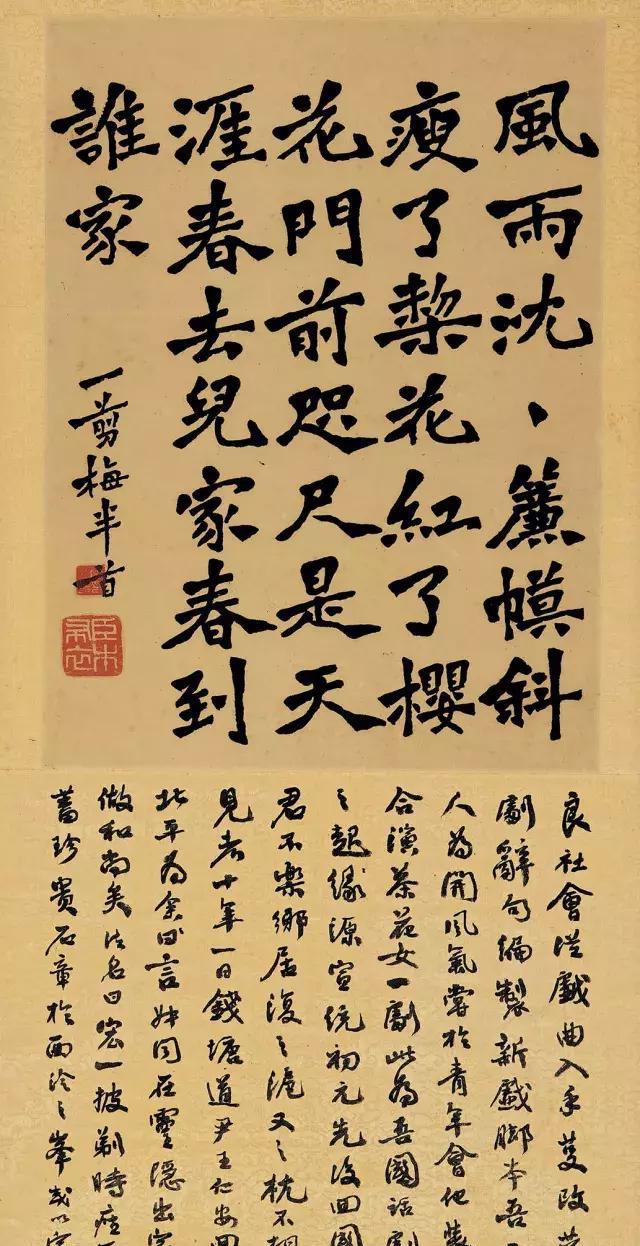 風雨沈、簾幙斜
瘦了棃花紅了櫻
花門前咫尺是天
涯春去兒家春到
誰家
一剪梅半首
良社會從戲曲入手改
劇辭句編製新戲脚本吾
人為開風氣嘗於青年會化裝
合演茶花女一劇此為吾國話劇
之起緣源宣統初元先後回國
君不樂鄉居復之滬又之杭不相
見者十年一日錢塘道尹王仁安回
北平為余言同在靈隱出家
做和尚矣法名曰宏一披剃時
蓄珍貴石章於西泠之峯或以